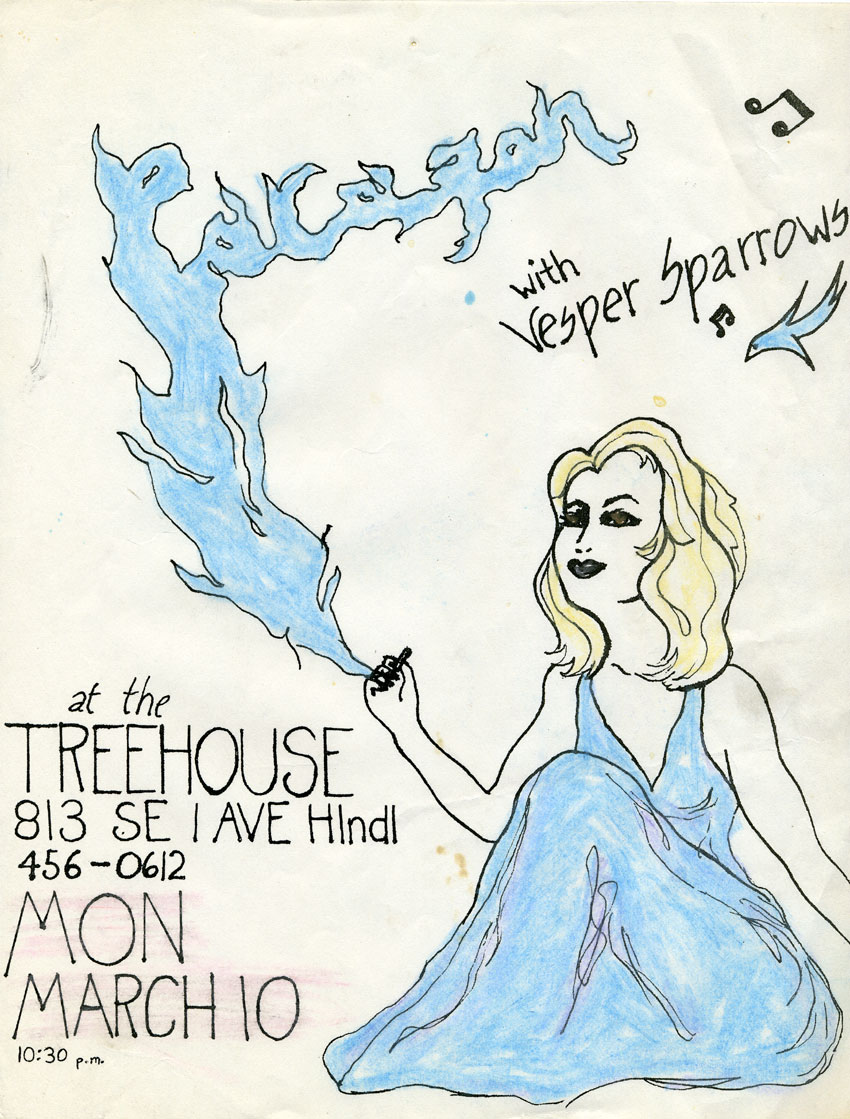 Paragon
with
Vesper Sparrows
at the
TREEHOUSE
813 SE 1 AVE Hlndl
456-0612
MON
MARCH 10
10:30 p.m.